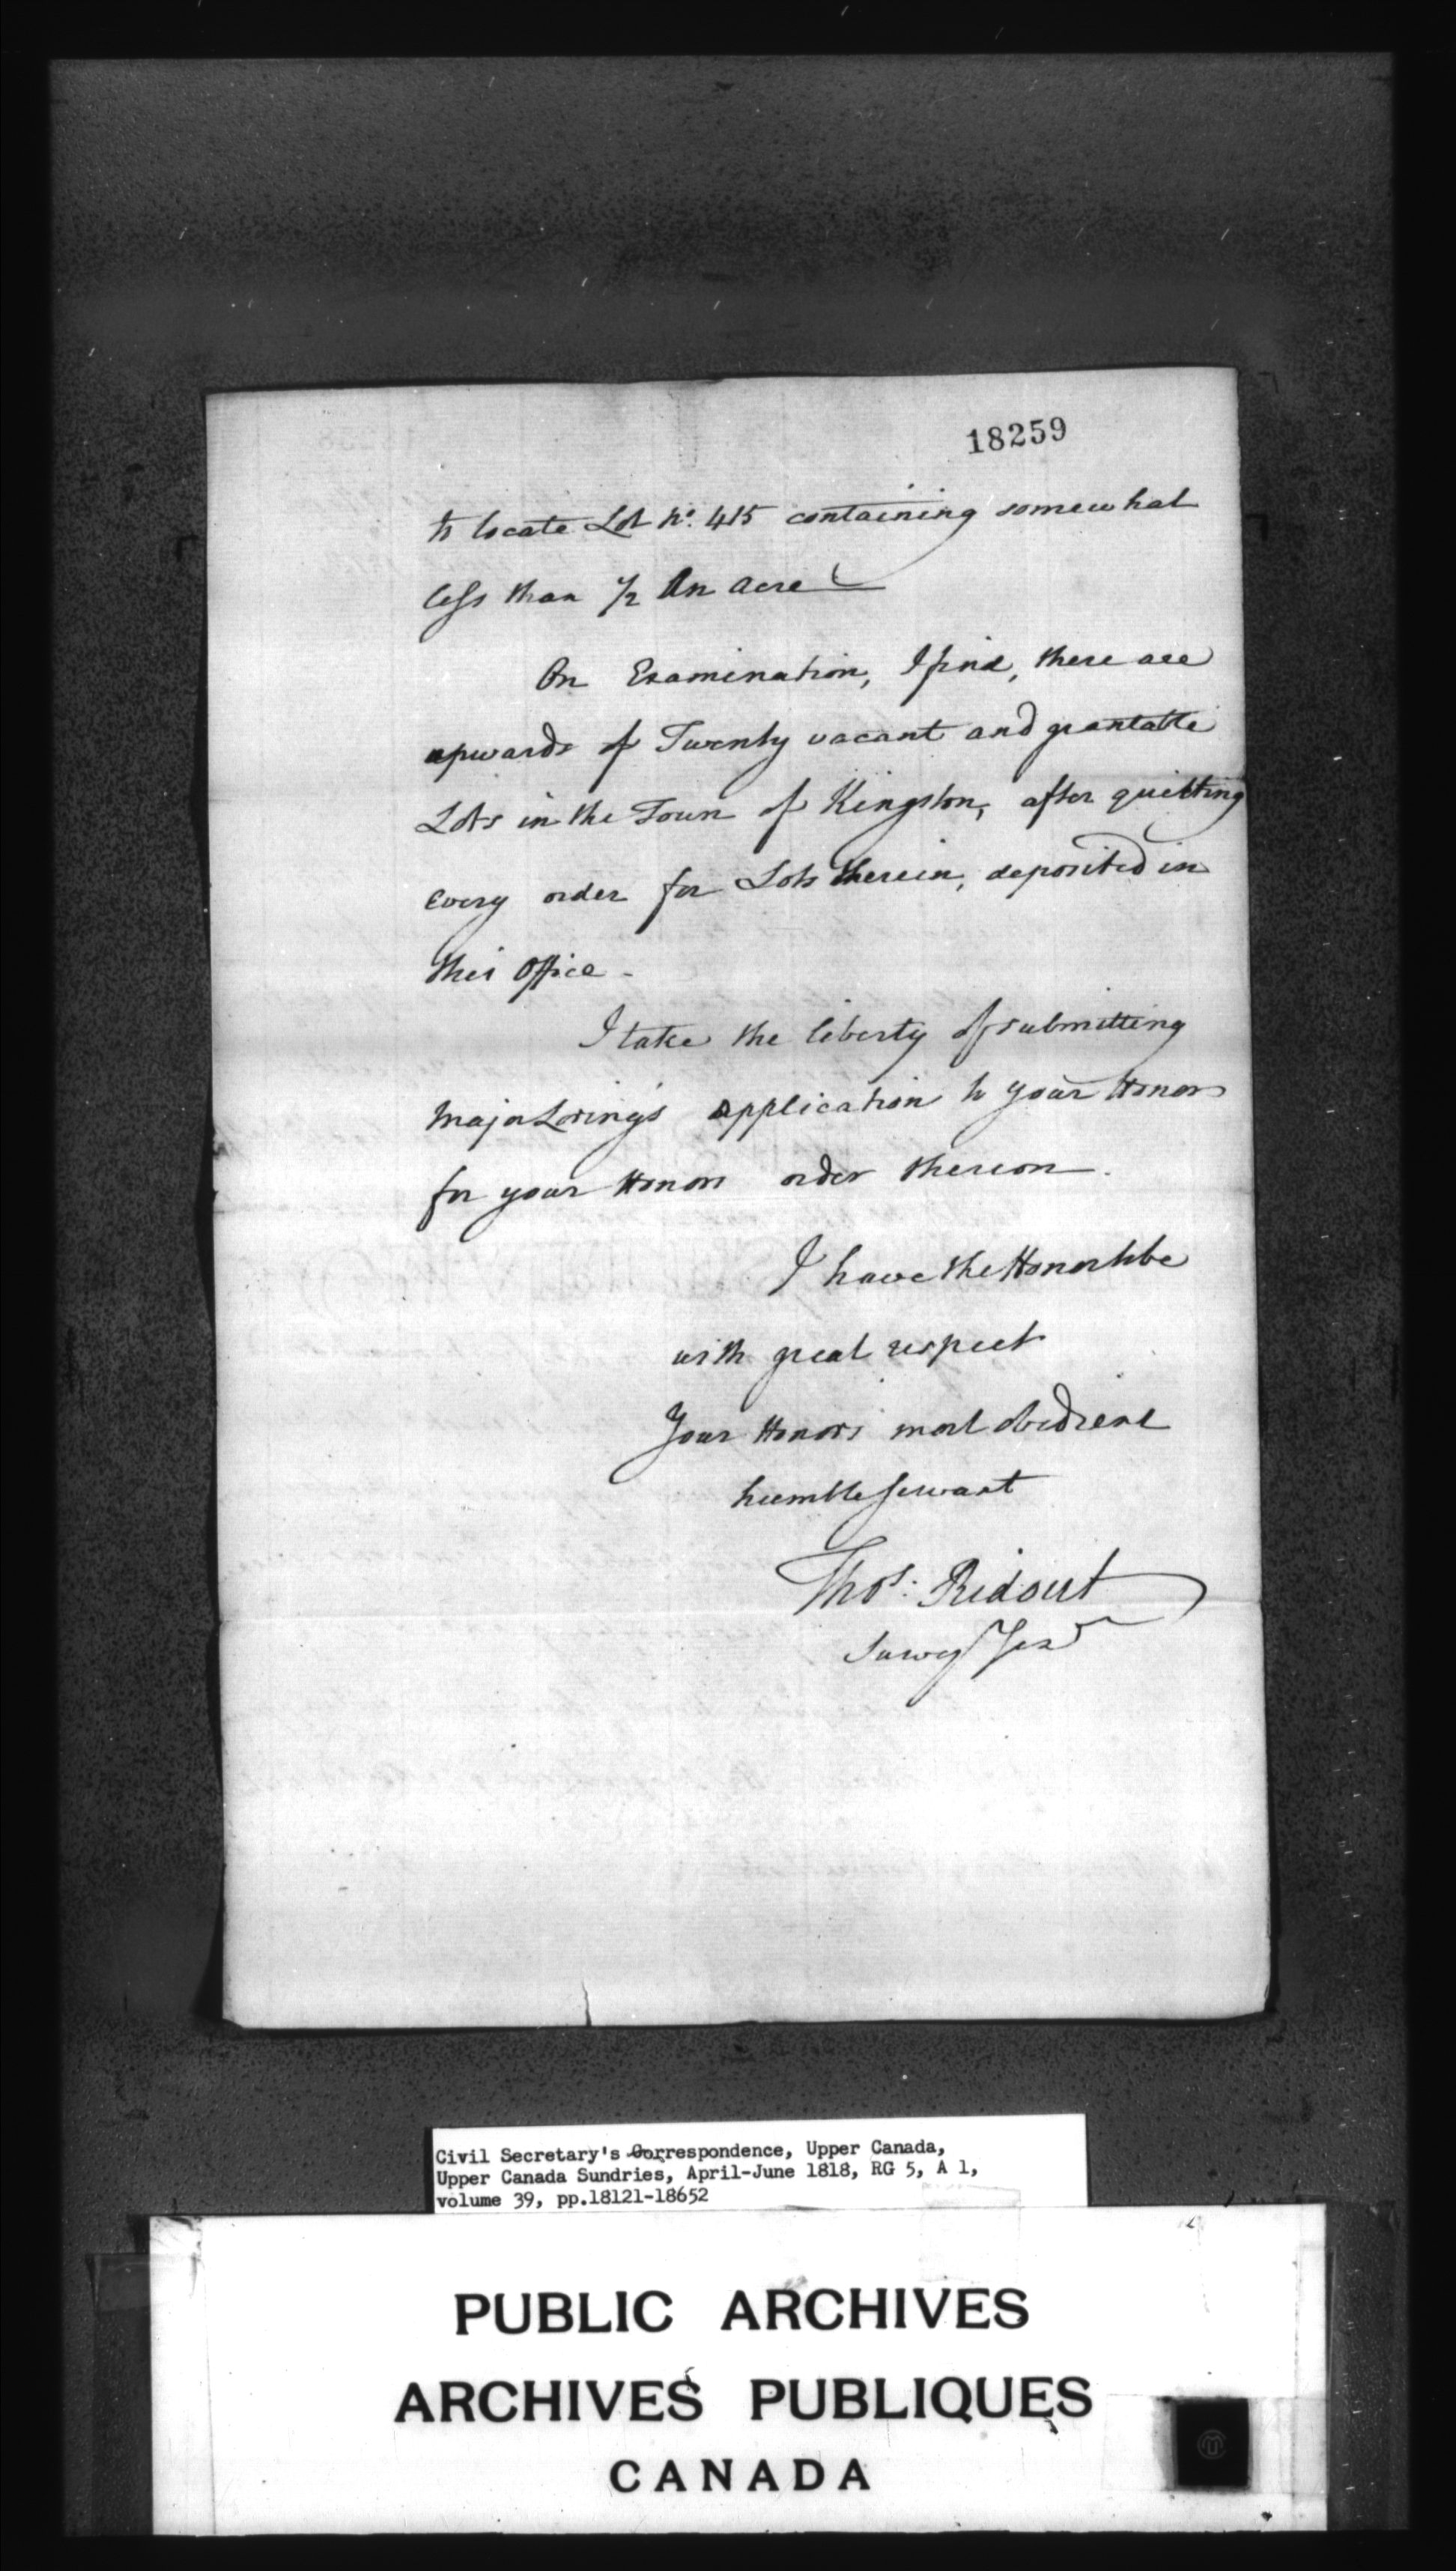 18259
to locate Lot No. 415 containing somewhat
less than 1/2 An Acre
On Examination, I find, there are
upwards of Twenty vacant and grantable
Lots in the Town of Kingston, after quitting
every order for Lots therein, deposited in
this Office -
I take the liberty of submitting
Major Loring's application to Your Honor
for your Honors order thereon.
I have the Honor to be
with great respect
Your Honors most obedient
humble Servant
Thos: Ridout
Survey Genl
Civil Secretary's Correspondence, Upper Canada,
Upper Canada Sundries, April-June 1818, RG 5, A 1,
volume 39, pp.18121-18652
PUBLIC ARCHIVES
ARCHIVES PUBLIQUES
CANADA